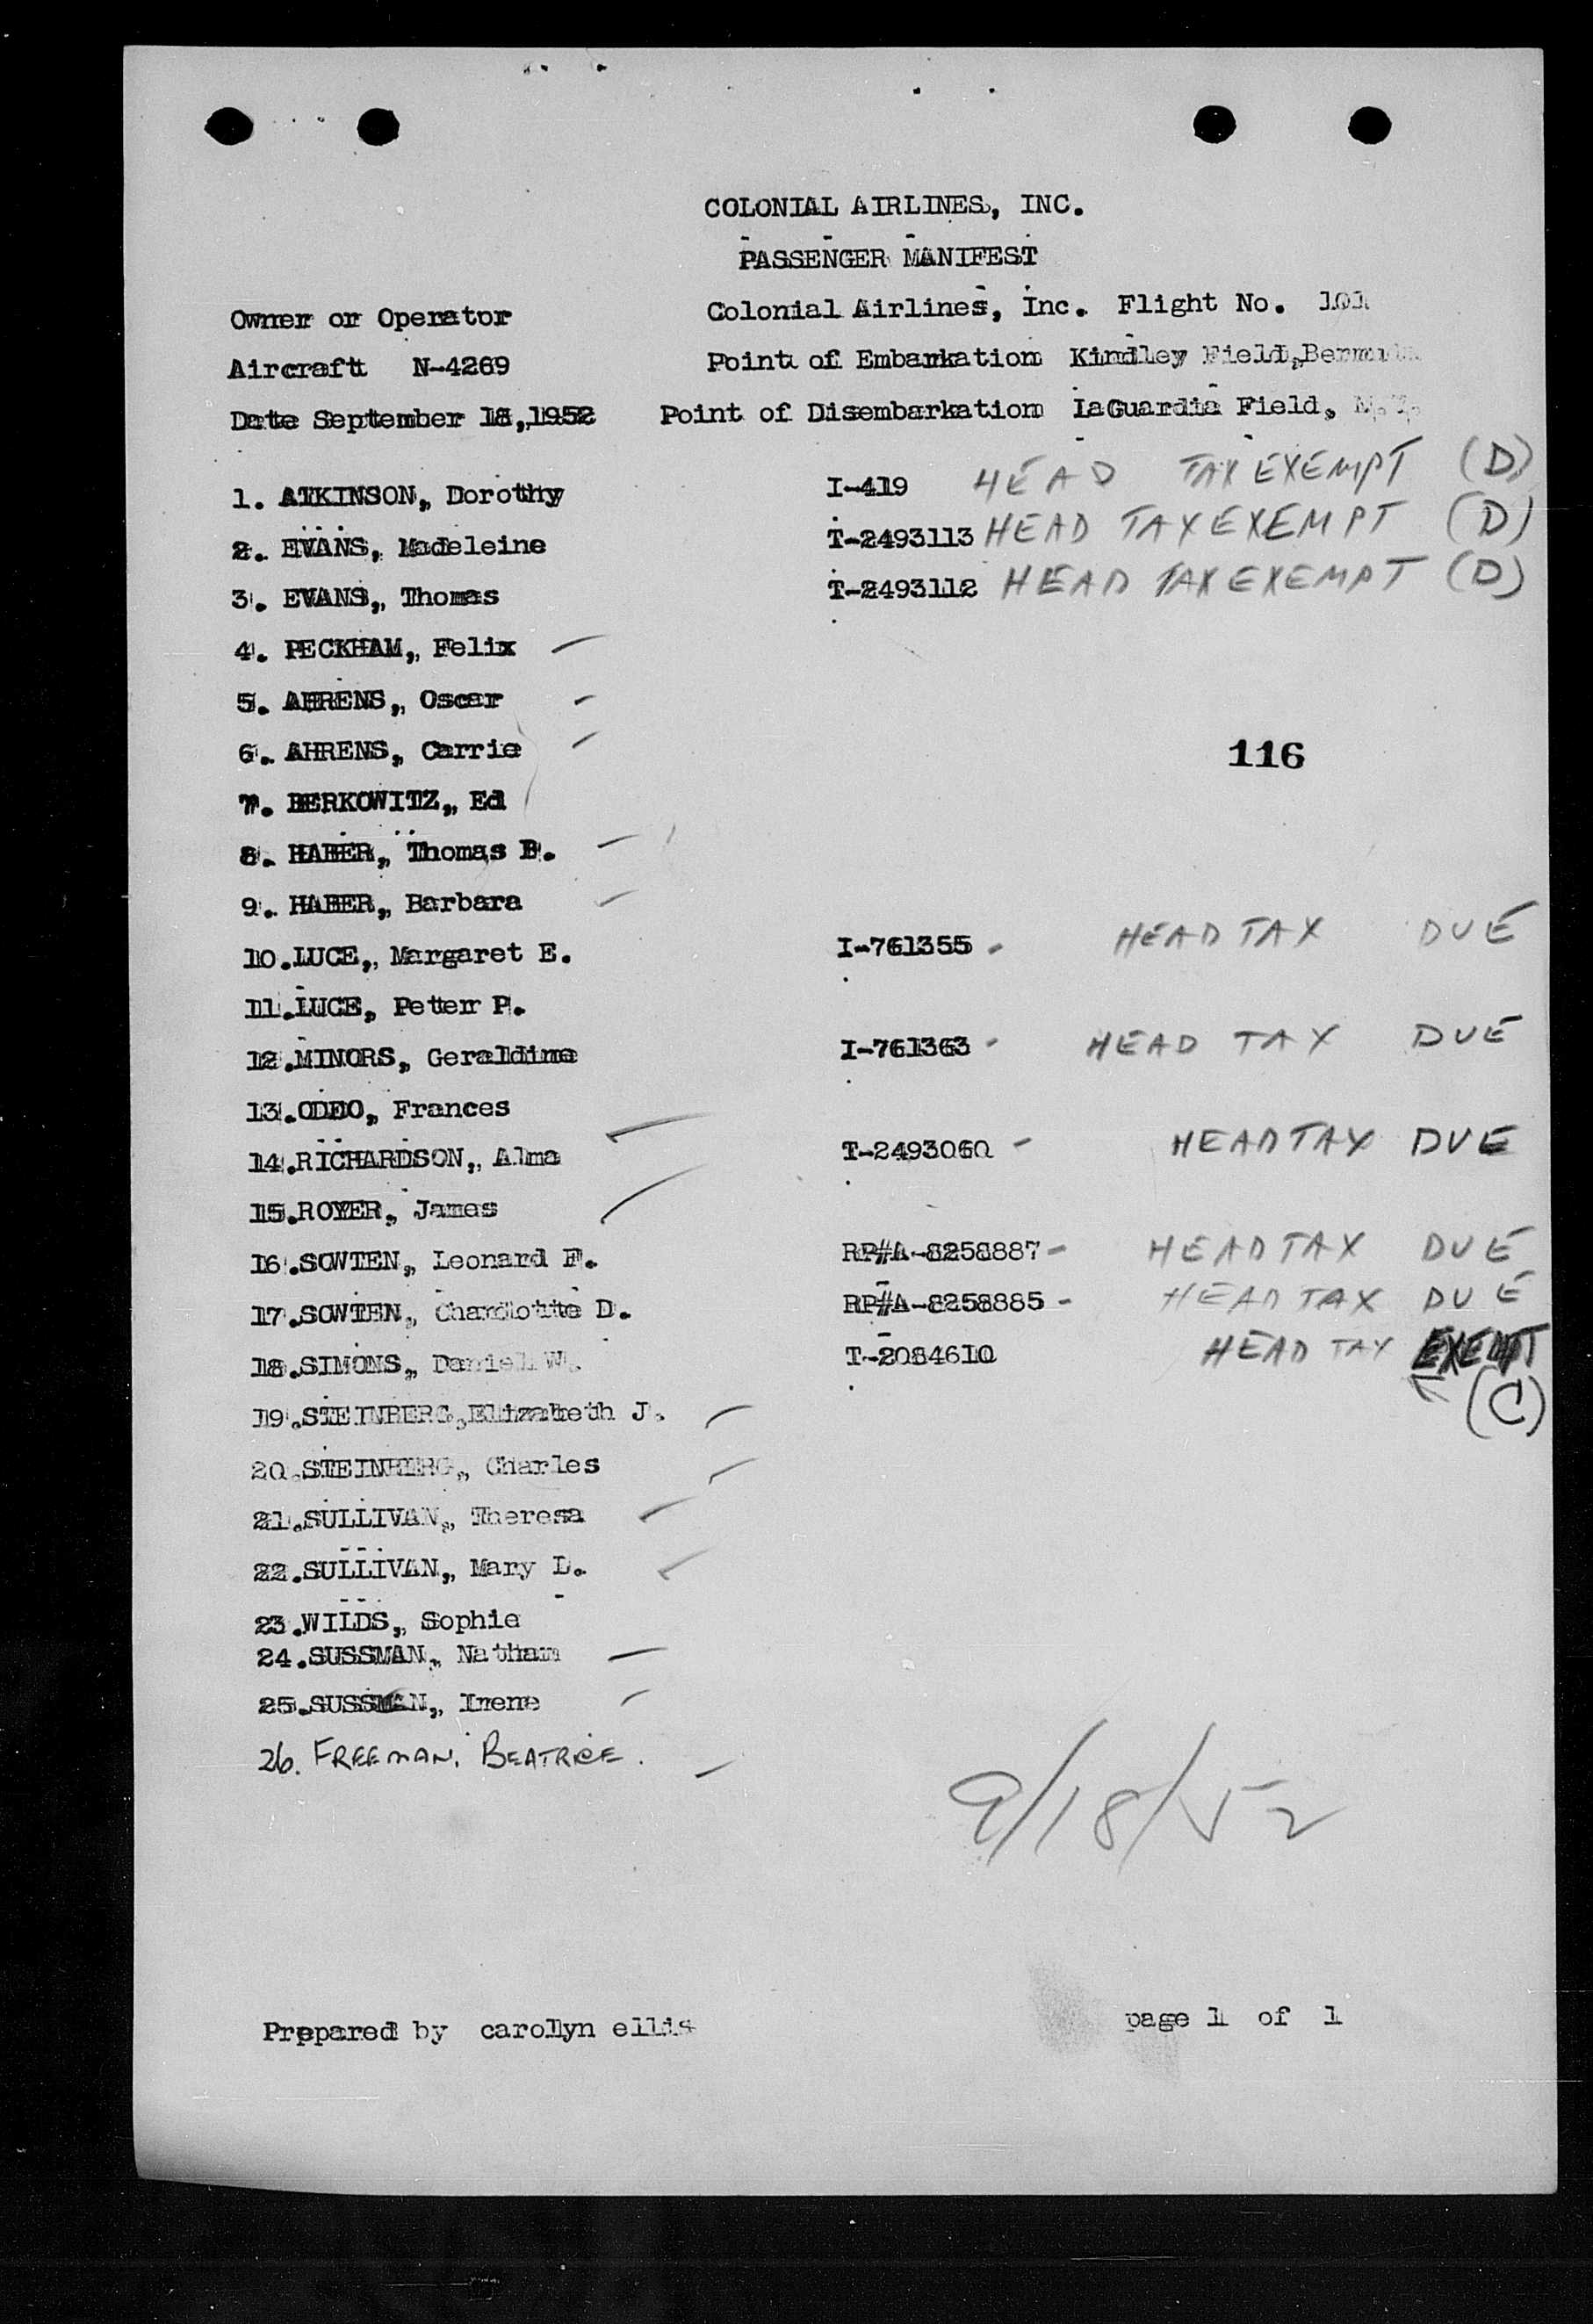 COLONIAL AIRLINES, INC.
PASSENGER MANIFEST
Owner or Operator Colonial Airlines, Inc. Flight No. 101
Aircraft N-4269 Point of Embarkation Kindley Field, Bermuda
Date September 18, 1952 Point of Disembarkation LaGuardia Field, N.Y.
1. ATKINSON, Dorothy I-419 HEAD TAX EXEMPT (D)
2. EVANS, Madeleine T-2493113 HEAD TAX EXEMPT (D)
3. EVANS, Thomas T-2493112 HEAD TAX EXEMPT (D)
4. PECKHAM, Felix
5. AHRENS, Oscar
6. AHRENS, Carrie
116
7. BERKOWITZ, Ed
8. HABER, Thomas B.
9. HABER, Barbara
10. LUCE, Margaret E. I-761355 - HEAD TAX DUE
11. LUCE, Peter P.
12. MINORS, Geraldine I-761363 - HEAD TAX DUE
13. ODDO, Frances
14. RICHARDSON, Alma T-2493060 - HEAD TAX DUE
15. ROYER, James
16. SOWTEN, Leonard F. RP#A-8258887 - HEAD TAX DUE
17. SOWTEN, Charlotte D. RP#A-8258885 - HEAD TAX DUE
18. SIMONS, Daniel W. T-2084610 HEAD TAX EXEMPT
(C)
19. STEINBERG, Elizabeth J.
20. STEINBERG, Charles
21. SULLIVAN, Theresa
22. SULLIVAN, Mary L.
23. WILDS, Sophie
24. SUSSMAN, Nathan
25. SUSSMAN, Irene
26. FREEMAN, BEATRICE.
9/18/52
Prepared by carollyn ellis page 1 of 1